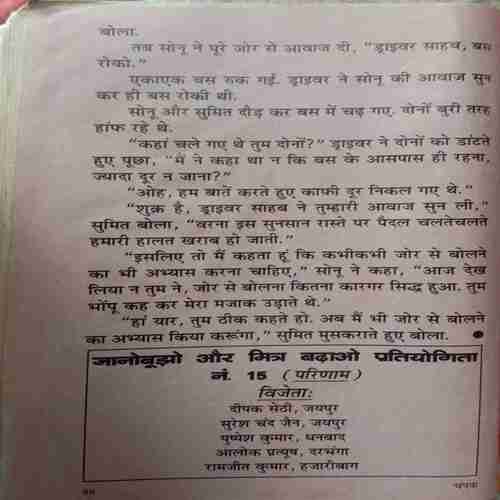 बोला.
तब सोनू ने पूरे जोर से आवाज दी, “ड्राइवर साहब, बस
रोको.”
एकाएक बस रुक गई. ड्राइवर ने सोनू की आवाज सुन
कर ही बस रोकी थी.
सोनू और सुमित दौड़ कर बस में चढ़ गए. दोनों बुरी तरह
हांफ रहे थे.
“कहां चले गए थे तुम दोनों?” ड्राइवर ने दोनों को डांटते
हुए पूछा, “मैं ने कहा था न कि बस के आसपास ही रहना,
ज्यादा दूर न जाना?”
“ओह, हम बातें करते हुए काफी दूर निकल गए थे.”
“शुक्र है, ड्राइवर साहब ने तुम्हारी आवाज सुन ली,”
सुमित बोला, “वरना इस सुनसान रास्ते पर पैदल चलतेचलते
हमारी हालत खराब हो जाती.”
“इसलिए तो मैं कहता हूं कि कभीकभी जोर से बोलने
का भी अभ्यास करना चाहिए,” सोनू ने कहा, “आज देख
लिया न तुम ने, जोर से बोलना कितना कारगर सिद्ध हुआ. तुम
भोंपू कह कर मेरा मजाक उड़ाते थे.”
“हां यार, तुम ठीक कहते हो. अब मैं भी जोर से बोलने
का अभ्यास किया करूंगा,” सुमित मुसकराते हुए बोला. ●
जानोबूझो और मित्र बढ़ाओ प्रतियोगिता
नं. 15 (परिणाम)
विजेता:
दीपक सेठी, जयपुर
सुरेश चंद जैन, जयपुर
पुष्पेश कुमार, धनबाद
आलोक प्रत्यूष, दरभंगा
रामजीत कुमार, हजारीबाग
चंपक